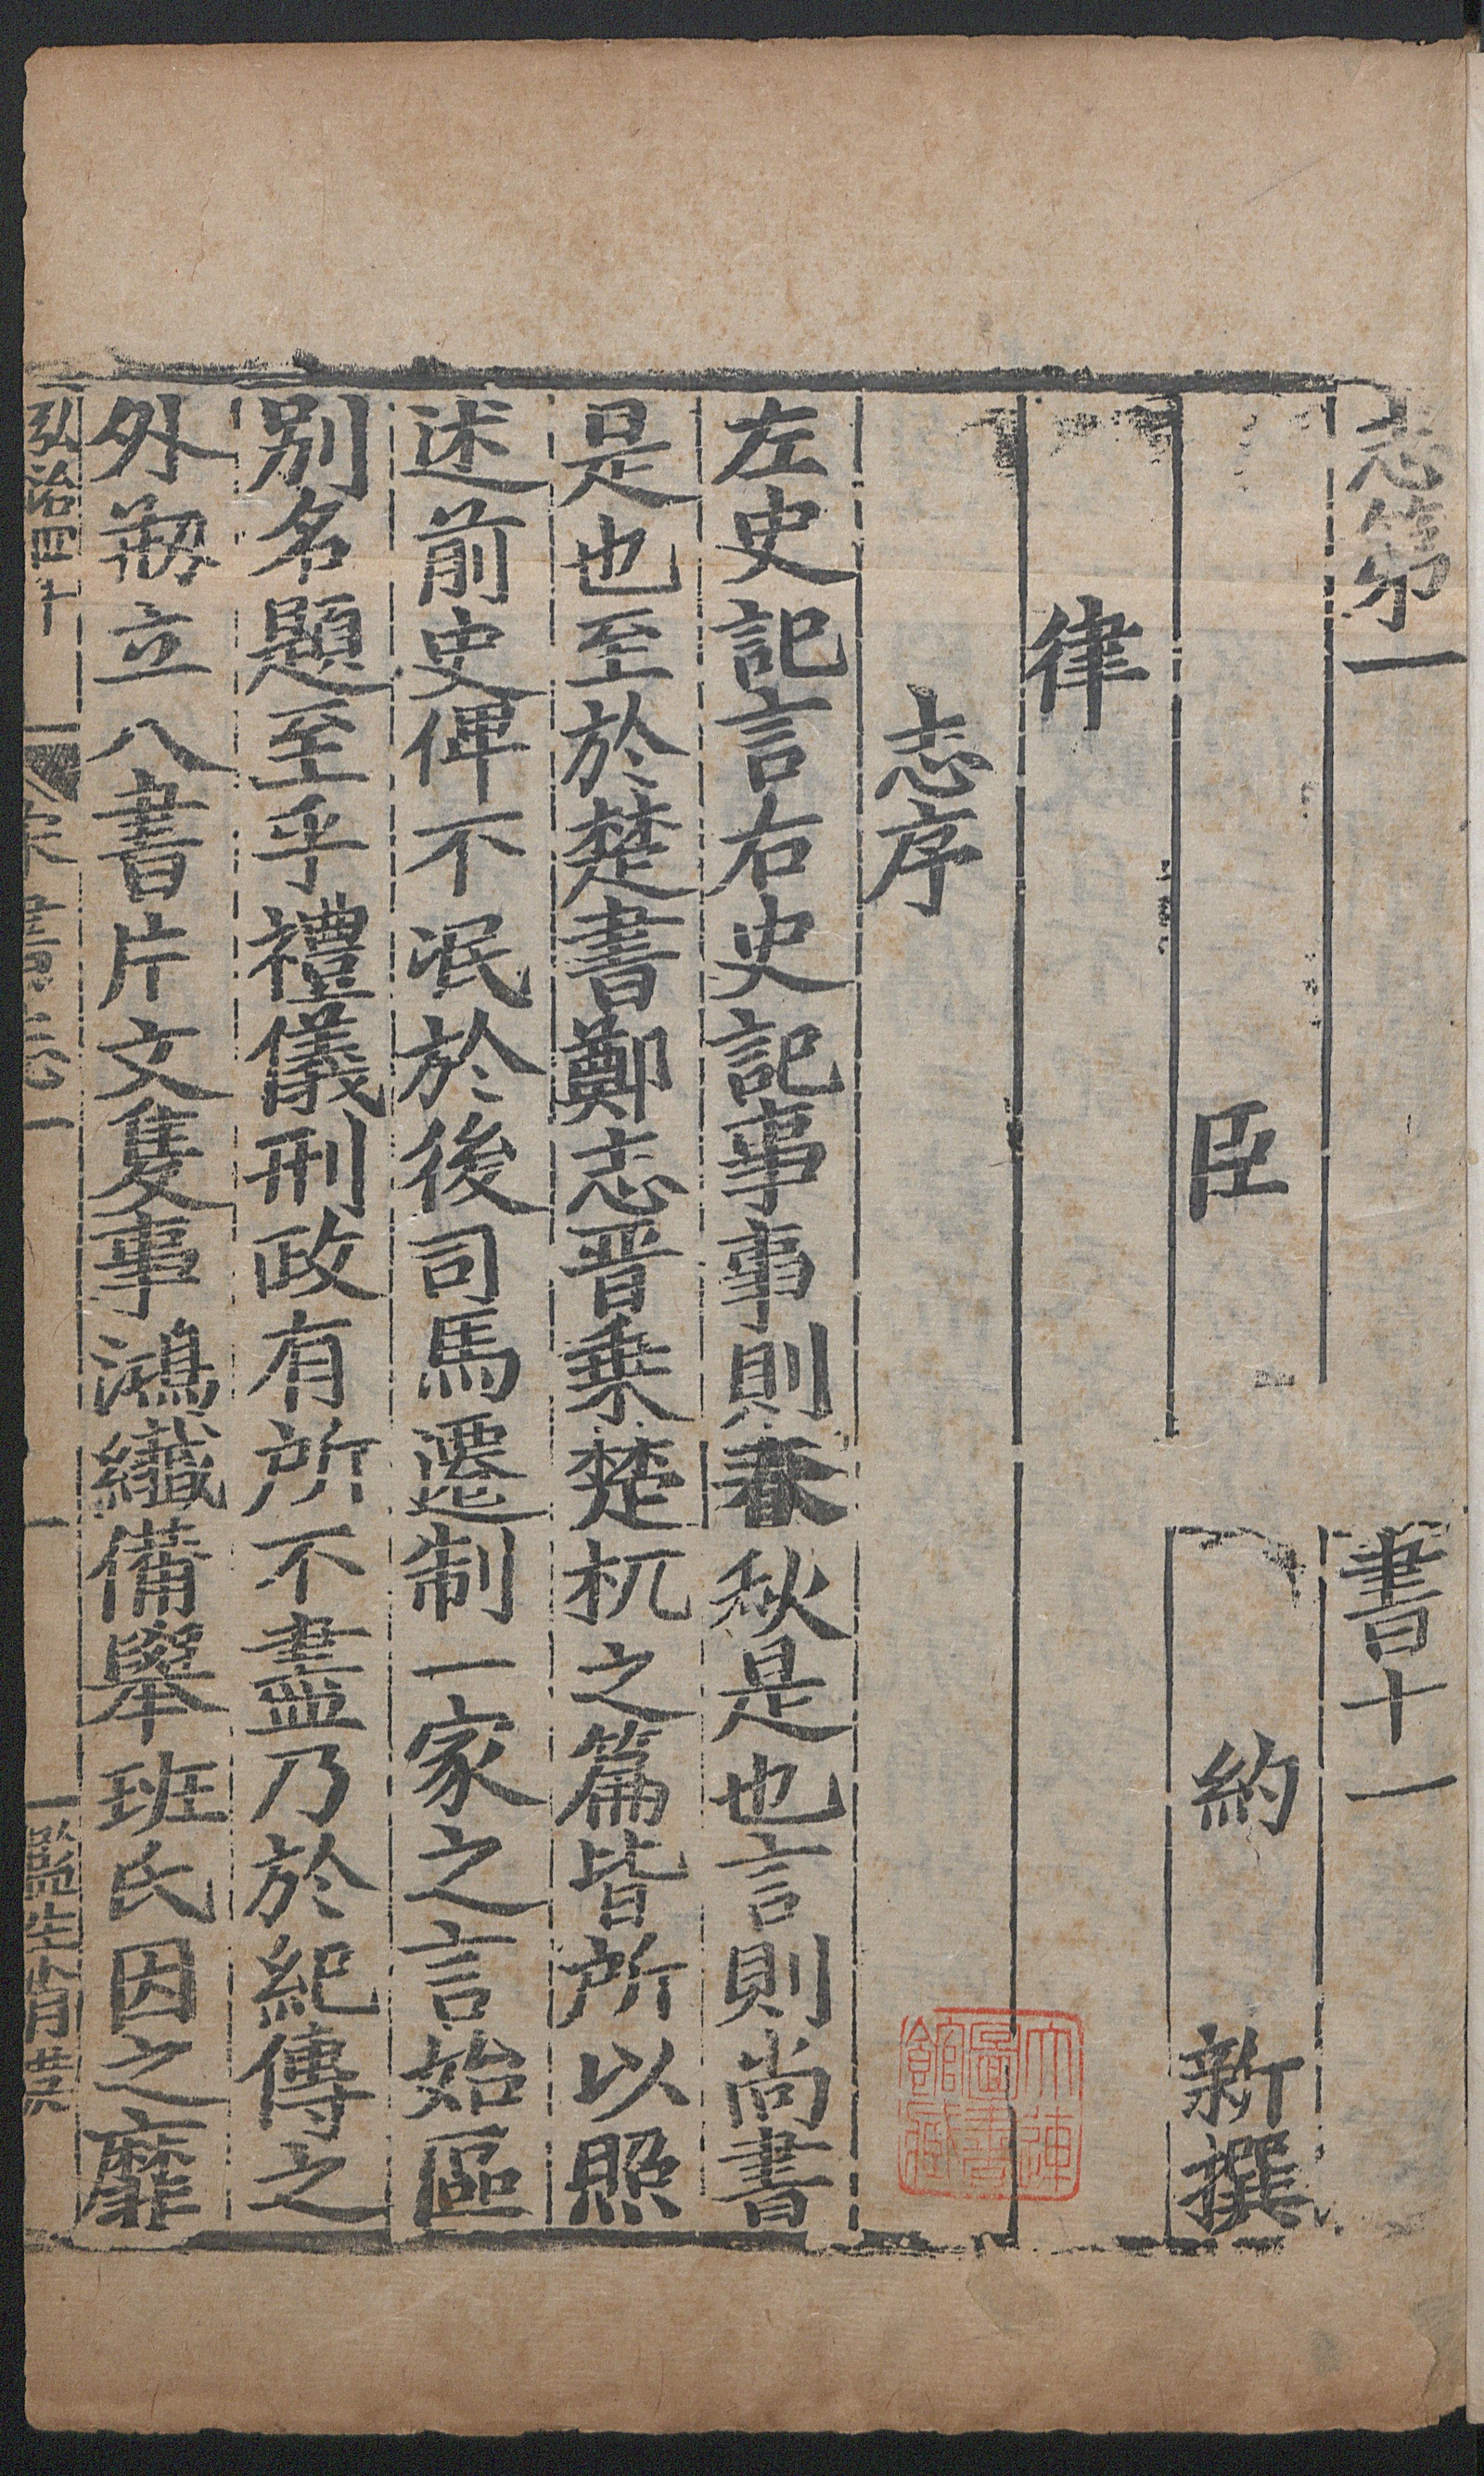 志第一 書十一
臣 約 新撰
律
志序
左史記言右史記事事則春秋是也言則尚書
是也至於楚書鄭志晋乗楚杌之篇皆所以照
述前史俾不泯於後司馬遷制一家之言始區
别名題至乎禮儀刑政有所不盡乃於紀傳之
外剏立八書片文隻事鴻纖備舉班氏因之靡
弘治四年
宋書志一
一
監生
大連圖書館藏